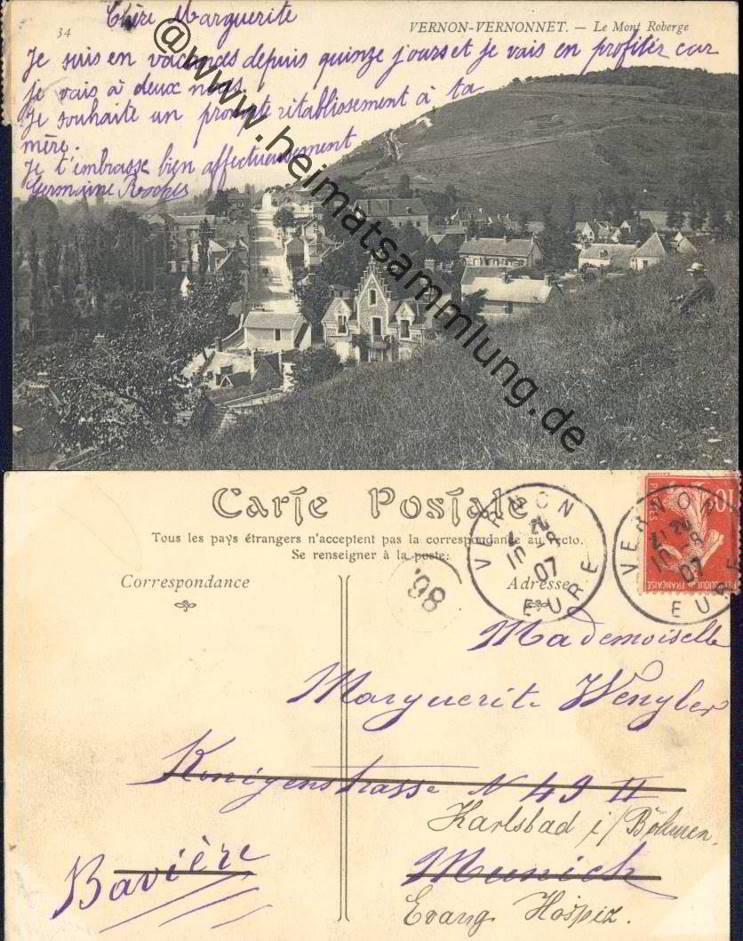 34
VERNON-VERNONNET. — Le Mont Roberge
Chère Marguerite
Je suis en vacances depuis quinze jours et je vais en profiter car
je vais à deux noces.
Je souhaite un prompte rétablissement à ta
mère.
Je t'embrasse bien affectueusement
Germaine
@www.heimatsammlung.de
Carte Postale
Tous les pays étrangers n'acceptent pas la correspondance au recto.
Se renseigner à la poste.
Correspondance
Adresse
VERNON
EURE
07
VERNON
EURE
07
10
98
Mademoiselle
Marguerite Wengler
Königenstrasse N 49 II
Karlsbad i/Böhmen.
Bavière
Munich
Evang Hospiz.